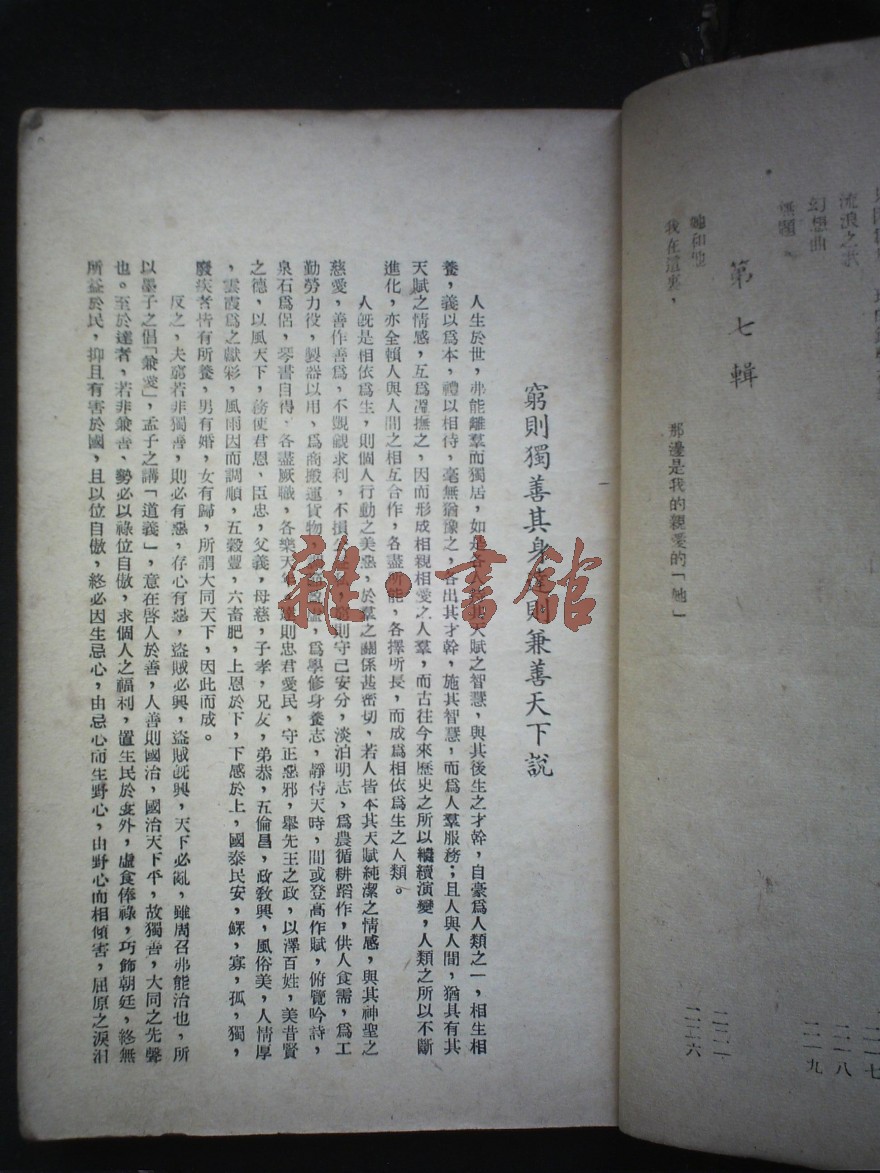 流浪之歌 二一八
幻想曲 二一九
無題
第七輯
她和他 二二一
我在這裏，那邊是我的親愛的「她」 二二六
窮則獨善其身達則兼善天下說
人生於世，弗能離羣而獨居，如是各人找其天賦之智慧，與其後生之才幹，自豪爲人類之一，相生相
養，義以爲本，禮以相待，毫無猶豫之，各出其才幹，施其智慧，而爲人羣服務；且人與人間，猶具有其
天賦之情感，互爲溫撫之，因而形成相親相愛之人羣，而古往今來歷史之所以繼續演變，人類之所以不斷
進化，亦全賴人與人間之相互合作，各盡所能，各擇所長，而成爲相依爲生之人類。
人既是相依爲生，則個人行動之美惡，於羣之關係甚密切，若人皆本其天賦純潔之情感，與其神聖之
慈愛，善作善爲，不覬覦求利，不損 則守己安分，淡泊明志，爲農循耕蹈作，供人食需，爲工
勤勞力役，製器以用，爲商搬運貨物， 爲學修身養志，靜待天時，間或登高作賦，俯覽吟詩，
泉石爲侶，琴書自得，各盡厥職，各樂天年，達則忠君愛民，守正惡邪，舉先王之政，以澤百姓，美昔賢
之德，以風天下，務使君恩，臣忠，父義，母慈，子孝，兄友，弟恭，五倫昌，政敎興，風俗美，人情厚
，雲霞爲之獻彩，風雨因而調順，五穀豐，六畜肥，上恩於下，下感於上，國泰民安，鰥，寡，孤，獨，
廢疾者皆有所養，男有婚，女有歸，所謂大同天下，因此而成。
反之，夫窮若非獨善，則必有惡，存心有惡，盜賊必興，盜賊既興，天下必亂，雖周召弗能治也，所
以墨子之倡「兼愛」，孟子之講「道義」，意在啓人於善，人善則國治，國治天下平，故獨善，大同之先聲
也。至於達者，若非兼善、勢必以祿位自傲，求個人之福利，置生民於度外，虛食俸祿，巧飾朝廷，終無
所益於民，抑且有害於國，且以位自傲，終必因生忌心，由忌心而生野心，由野心而相傾害，屈原之淚汨
雜·書館